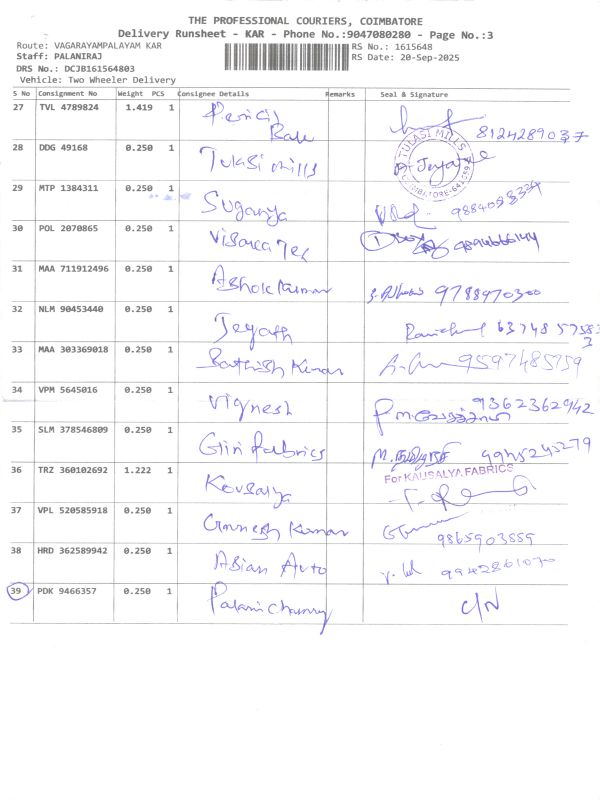 THE PROFESSIONAL COURIERS, COIMBATORE
Delivery Runsheet - KAR - Phone No.:9047080280 - Page No.:3
Route: VAGARAYAMPALAYAM KAR RS No.: 1615648
Staff: PALANIRAJ RS Date: 20-Sep-2025
DRS No.: DCJB161564803
Vehicle: Two Wheeler Delivery
S No Consignment No Weight PCS Consignee Details Remarks Seal & Signature
27 TVL 4789824 1.419 1 8124289037
28 DDG 49168 0.250 1 Tulasi mills TULASI MILLS
29 MTP 1384311 0.250 1 Suganya
30 POL 2070865 0.250 1
31 MAA 711912496 0.250 1 Ashok Kumar 9788970300
32 NLM 90453440 0.250 1 Jeyath 63748 57583
33 MAA 303369018 0.250 1 Sathish Kumar 9597485759
34 VPM 5645016 0.250 1 Vignesh 9362362942
35 SLM 378546809 0.250 1 Giri fabrics
36 TRZ 360102692 1.222 1 Kousalya For KAUSALYA FABRICS
37 VPL 520585918 0.250 1 Ganesh Kumar 9865903559
38 HRD 362589942 0.250 1 Abian Auto 9942861070
39 PDK 9466357 0.250 1 C/N